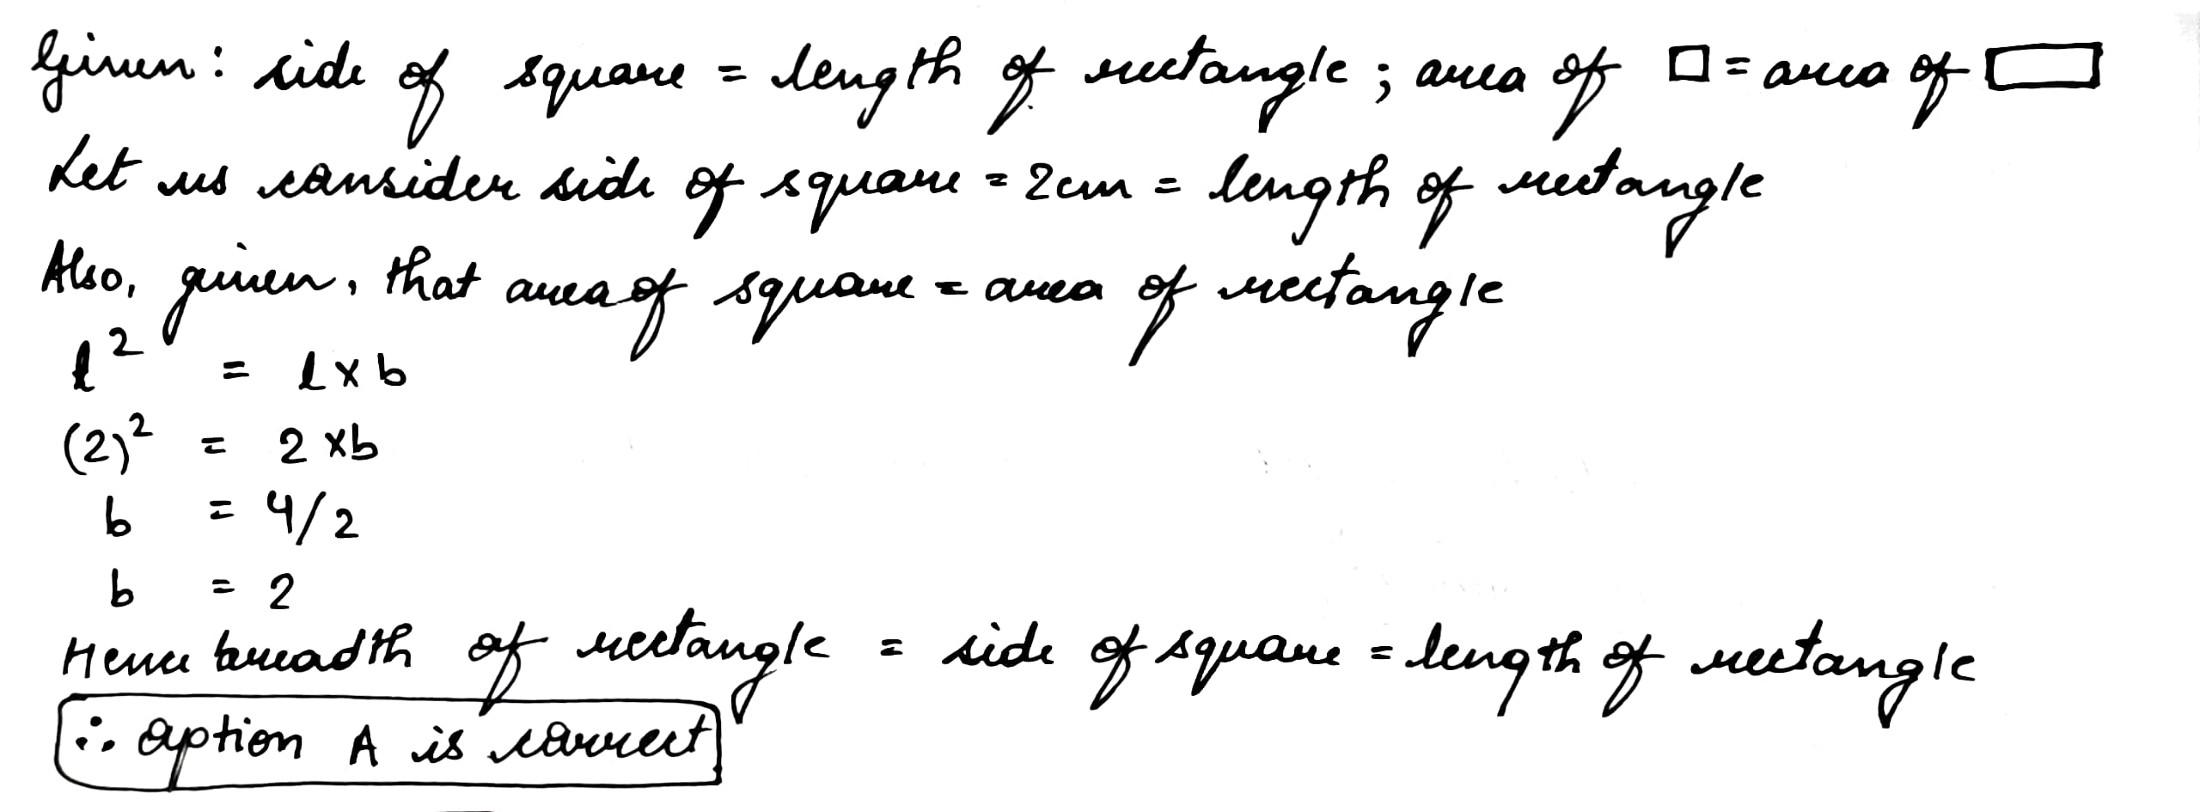 Given: side of square = length of rectangle; area of □ = area of ▭
Let us consider side of square = 2cm = length of rectangle
Also, given, that area of square = area of rectangle
l² = l × b
(2)² = 2 × b
b = 4/2
b = 2
Hence breadth of rectangle = side of square = length of rectangle
∴ option A is correct